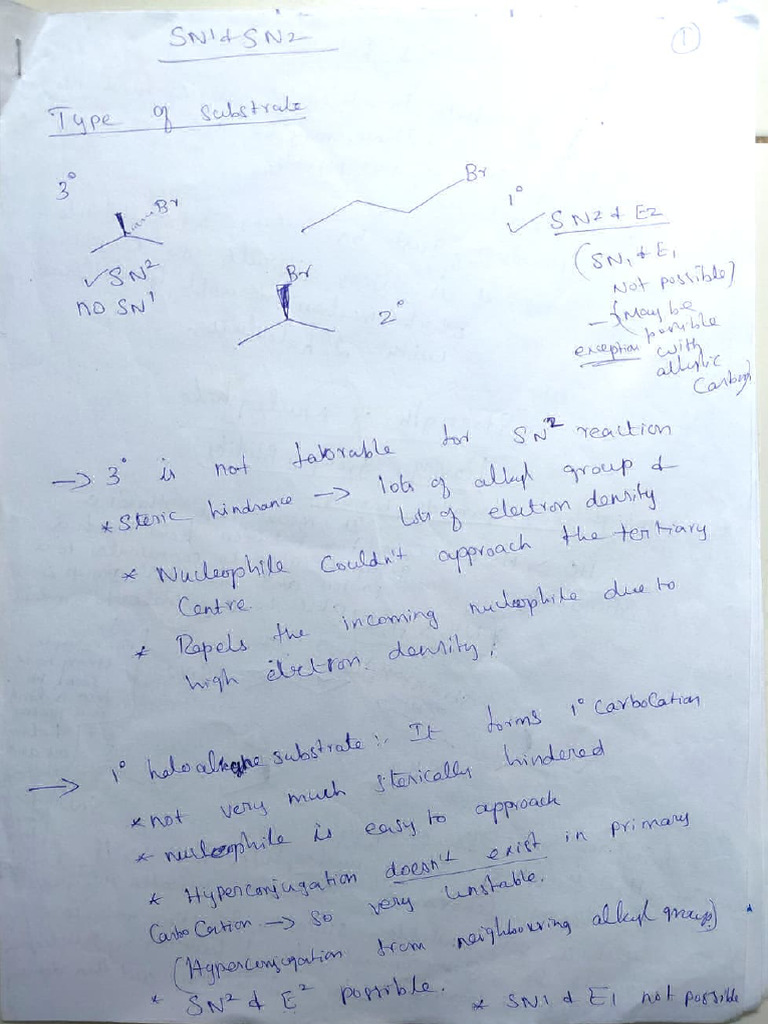 SN1 & SN2
1
Type of substrate
3°
Br
✓SN2
no SN1
Br
1°
✓ SN2 & E2
(SN1 & E1
Not possible)
–{May be
possible
exception with
allylic
Carbon}
Br
2°
→ 3° is not favorable for SN2 reaction
* Steric hindrance → lots of alkyl group &
Lots of electron density
* Nucleophile Couldn't approach the tertiary
Centre.
* Repels the incoming nucleophile due to
high electron density.
→ 1° haloalkane substrate :- It forms 1° Carbocation
* not very much sterically hindered
* nucleophile is easy to approach
* Hyperconjugation doesn't exist in primary
Carbo Cation → so very Unstable.
(Hyperconjugation from neighbouring alkyl group)
* SN2 & E2 possible. * SN1 & E1 not possible